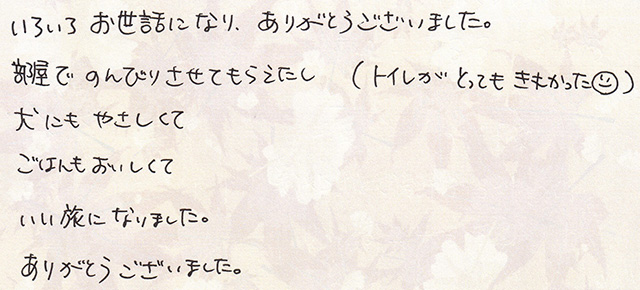 いろいろ お世話になり、ありがとうございました。
部屋で のんびりさせてもらえたし （トイレが とっても きれかった☺）
犬にも やさしくて
ごはんも おいしくて
いい旅に なりました。
ありがとう ございました。